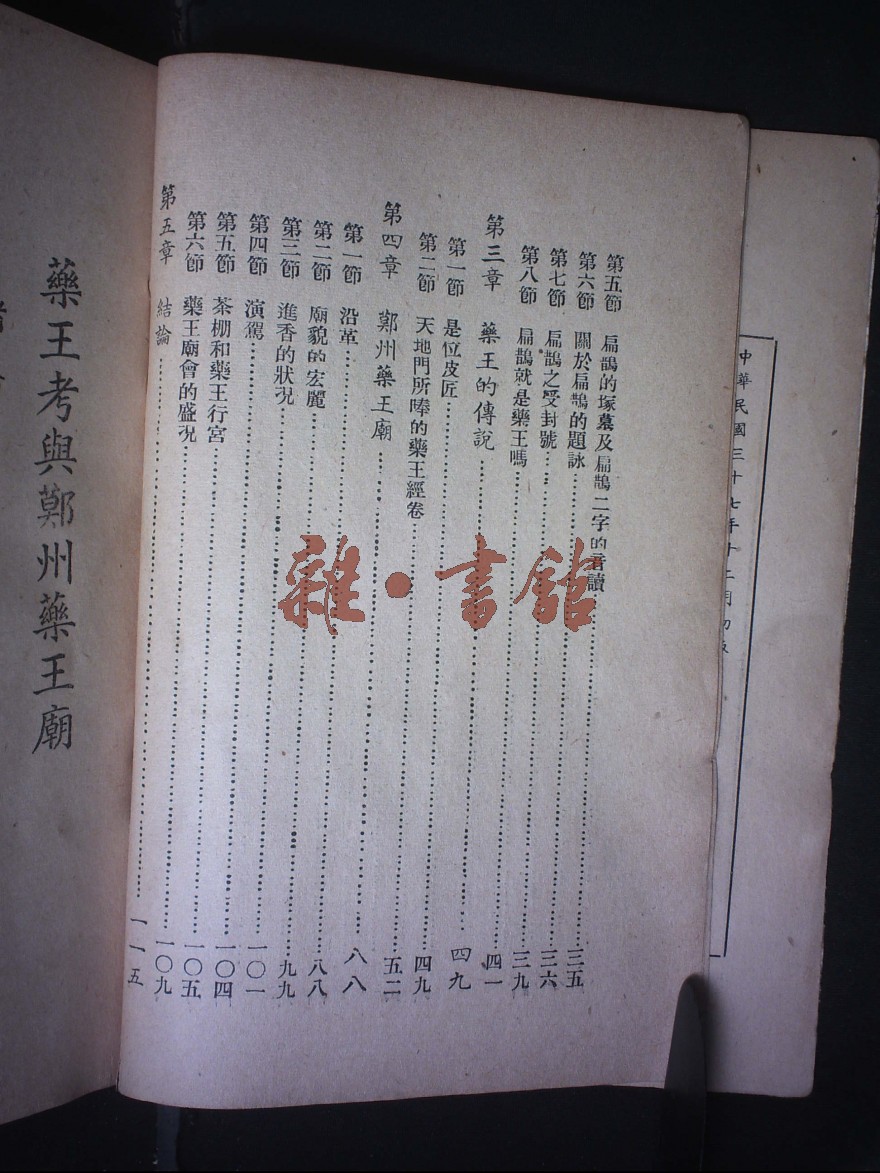 中華民國三十七年十二月初版
第五節 扁鵲的塚墓及扁鵲二字的音讀……三五
第六節 關於扁鵲的題詠……三六
第七節 扁鵲之受封號……三九
第八節 扁鵲就是藥王嗎……四一
第三章 藥王的傳說……四九
第一節 是位皮匠……四九
第二節 天地門所唪的藥王經卷……五二
第四章 鄭州藥王廟……八八
第一節 沿革……八八
第二節 廟貌的宏麗……九九
第三節 進香的狀況……一〇一
第四節 演駕……一〇四
第五節 茶棚和藥王行宮……一〇五
第六節 藥王廟會的盛況……一〇九
第五章 結論……一一五
藥王考與鄭州藥王廟
雜·書館